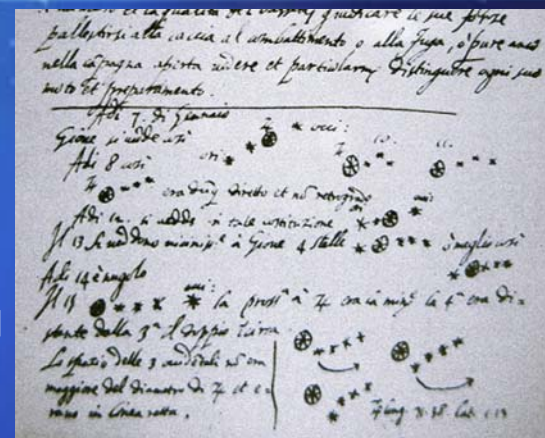 giudicare le sue forze
pallestirsi alla caccia al combattimento o alla fuga, ò pure anco
nella campagna aperta vedere et particolarmᵉ distinguere ogni suo
moto et preparamento.
Adi 7. di Gennaio
Giove si vedde così ori: * * ♃ * occi:
Adi 8 così ♃ * * * 10. 11.
era dũq diretto et nõ retrogrado
Adi 12. si vedde in tale costituzione
Il 13 si veddono à Giove 4 stelle * ♃ * * * ò meglio così
Adi 14 è nugolo
Il 15 ♃ * * * * la prossᵃ à ♃ era la minᵉ la 4ᵃ era di-
stante dalla 3ᵃ il doppio circa.
Lo spatio delle 3 occidẽtali nõ era
maggiore del diametro di ♃ et e-
rano in linea retta.
♃ long. 71.38 Lat. 1.13